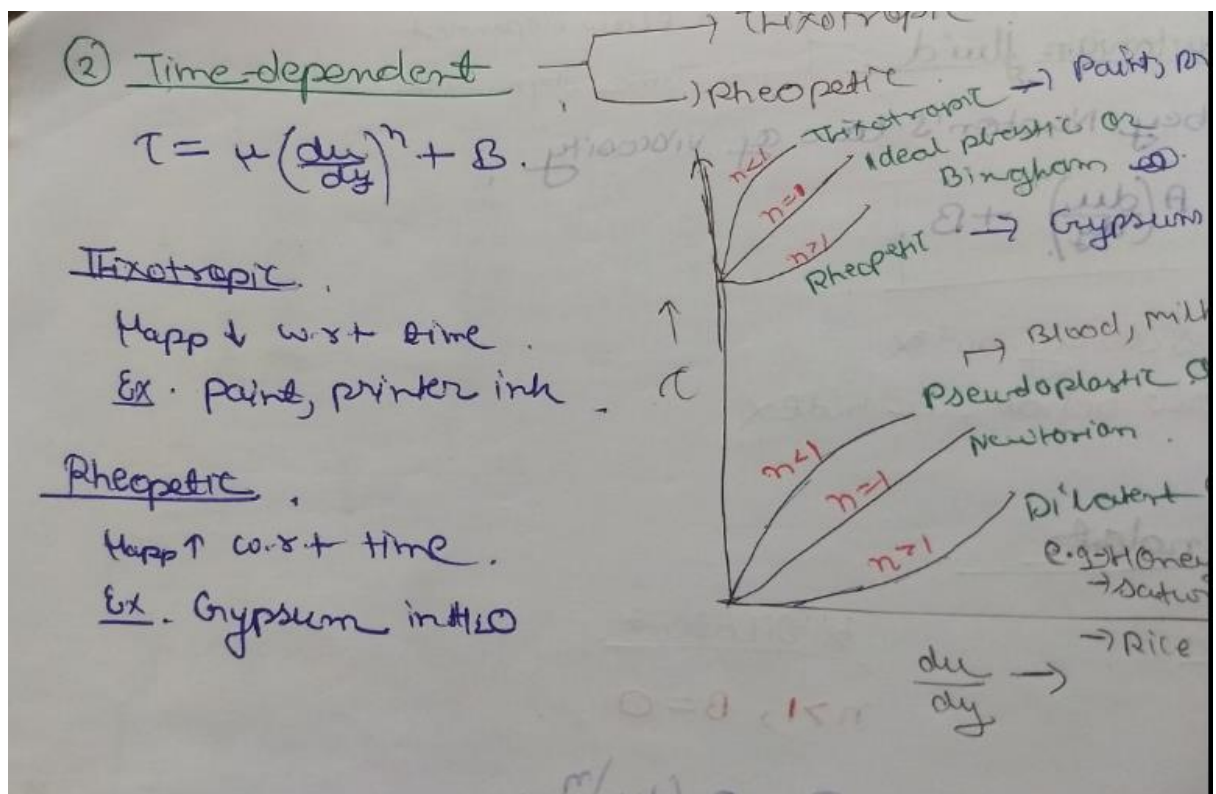 ② Time-dependent
→ Thixotropic
→ Rheopetic
τ = μ(du/dy)^n + B.
Thixotropic.
μapp ↓ w.r.t time.
Ex. paint, printer ink.
Rheopetic.
μapp ↑ w.r.t time.
Ex. Gypsum in H2O
n<1 Thixotropic → Paint,
n=1 Ideal plastic or
Bingham
n>1 Rheopetic → Gypsum
↑
τ
→ Blood, milk
n<1 Pseudoplastic
n=1 Newtonian.
n>1 Dilatent
e.g→Honey
→ Rice
du/dy →
n>1, B=0